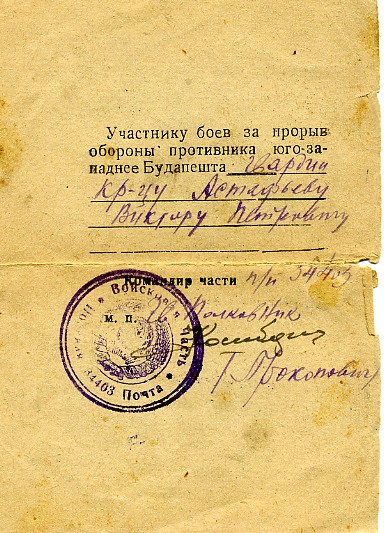 Участнику боев за прорыв
обороны противника юго-за-
паднее Будапешта Гвардии
кр-цу Астафьеву
Виктору Петровичу
Командир части п/п 34403
м. п. Гв. Полковник
Г. Прокопович
Войсковая часть
34403 Почта